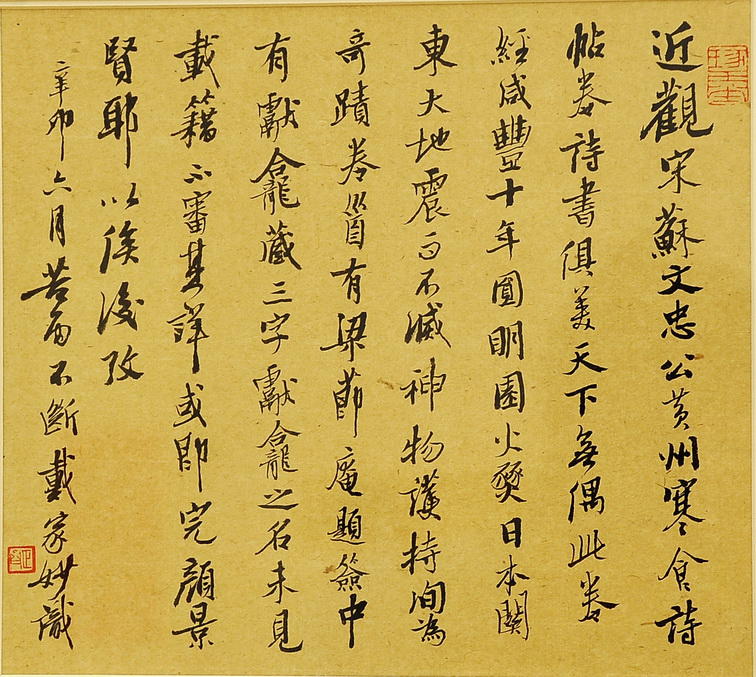 近觀宋蘇文忠公黃州寒食詩
帖卷詩書俱美天下無偶此卷
經咸豐十年圓明園火燹日本關
東大地震而不滅神物護持洵為
奇蹟卷首有梁莭庵題簽中
有獻龕藏三字獻龕之名未見
載籍不審其詳或即完顏景
賢耶以俟後攷
辛卯六月苦雨不斷戴家妙識